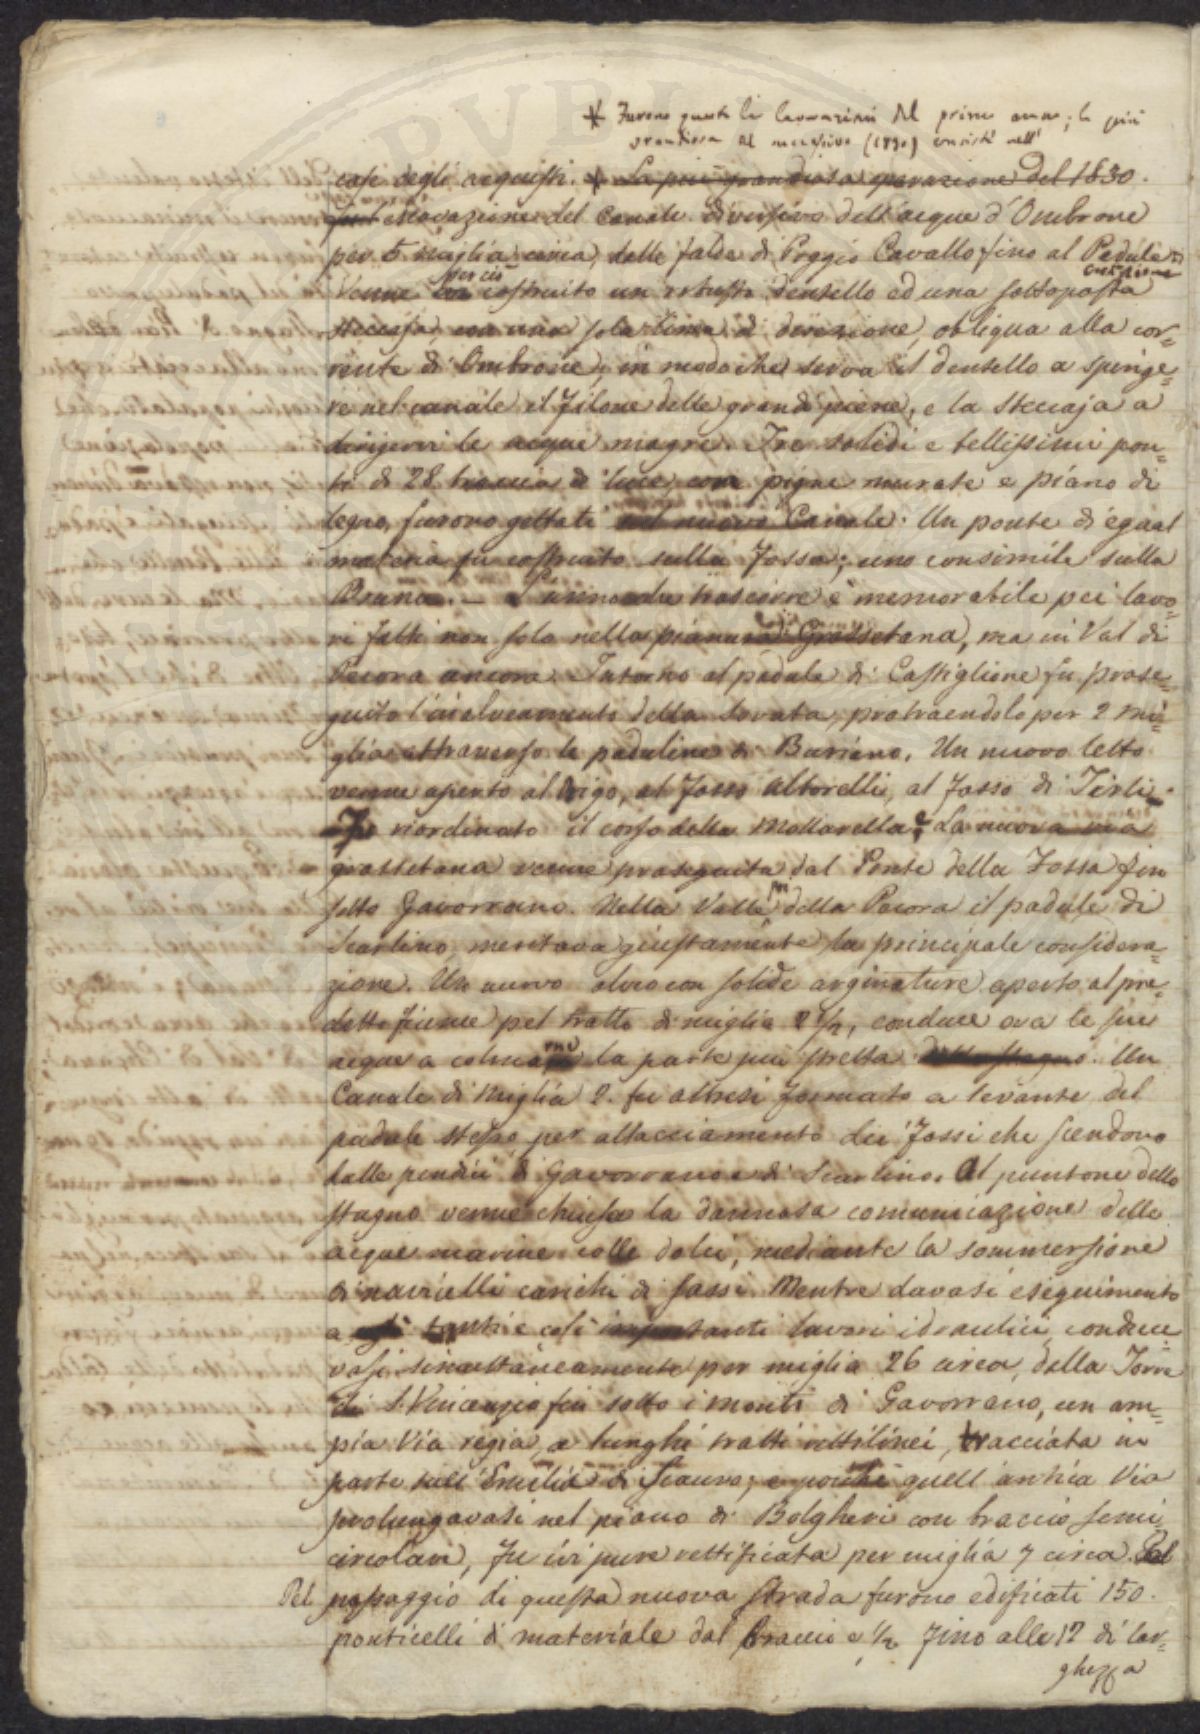 * Furono queste le lavorazioni del primo anno; la più
grandiosa del successivo (1830) consisté nell'
case degli acquisti. * La più grandiosa operazione del 1830.
escavazione del Canale diversivo dell'acque d'Ombrone
per 5 miglia circa, dalle falde di Poggio Cavallo fino al Padule
Venne perciò costruito un robusto dentello ed una sottoposta
steccaja, con una sola linea di direzione, obliqua alla cor=
rente di Ombrone, in modo che serva il dentello a spinge=
re nel canale il filone delle grandi piene, e la steccaja a
dirigervi le acque magre. Tre solidi e bellissimi pon=
ti di 28 braccia di luce con pigne murate e piano di
legno, furono gettati sul nuovo Canale. Un ponte di egual
materia fu costruito sulla Fossa; uno consimile sulla
Bruna. — L'anno che trascorre è memorabile pei lavo=
ri fatti non solo nella pianura Grossetana, ma in Val di
Pecora ancora. Intorno al padule di Castiglione fu prose=
guito l'inalveamento della Sovata, protraendolo per 2 mi=
glia attraverso le paduline di Buriano. Un nuovo letto
venne aperto al Rigo, al fosso Alborelli, al fosso di Tirli
Fu riordinato il corso della Mollarella, e La nuova via
grossetana venne proseguita dal Ponte della Fossa fin
sotto Gavorrano. Nella Valle poi della Pecora il padule di
Scarlino, meritava giustamente la principale considera=
zione. Un nuovo alveo con solide arginature aperto al pre=
detto fiume pel tratto di miglia 2 1/2, conduce ora le sue
acque a colmarne la parte più stretta dello stagno. Un
Canale di miglia 2. fu altresì formato a levante del
padule stesso per allacciamento dei fossi che scendono
dalle pendici di Gavorrano e di Scarlino. Al puntone dello
stagno venne chiusa la dannosa comunicazione delle
acque marine colle dolci, mediante la sommersione
di navicelli carichi di sassi. Mentre davasi eseguimento
a tanti e così importanti lavori idraulici, conduce=
vasi simultaneamente per miglia 26 circa, dalla Torre
di S. Vincenzio fin sotto i monti di Gavorrano, un am=
pia Via regia, a lunghi tratti rettilinei, tracciata in
parte sull'Emilia di Scauro; e poiché quell'antica Via
prolungavasi nel piano di Bolgheri con braccio semi
circolare, fu ivi pure rettificata per miglia 7 circa. Pel
Pel passaggio di questa nuova strada furono edificati 150.
ponticelli di materiale dal braccio e 1/2 fino alle 12 di lar=
ghezza